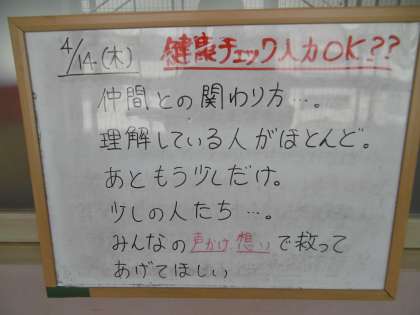 4/14(木) 健康チェック入力OK??
仲間との関わり方…。
理解している人がほとんど。
あともう少しだけ。
少しの人たち…。
みんなの声かけ想いで救って
あげてほしい